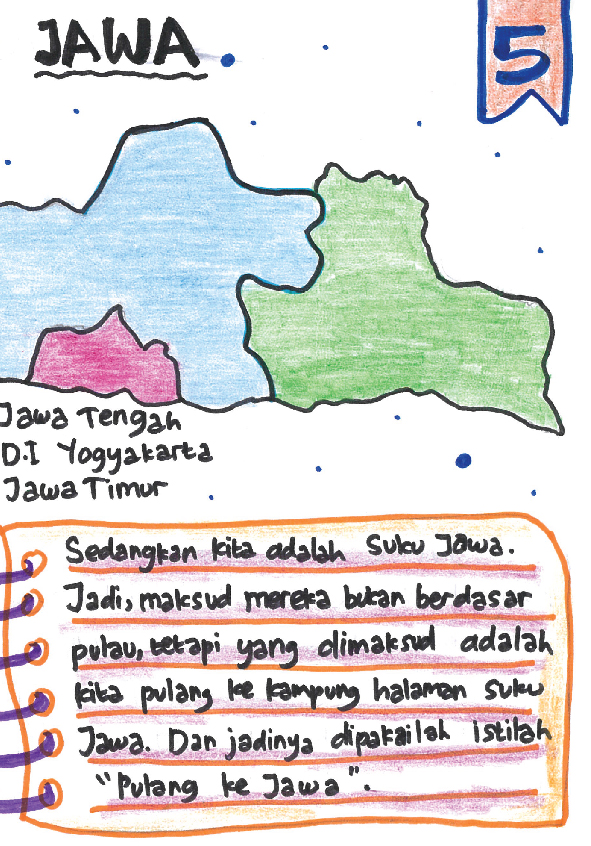 JAWA
5
Jawa Tengah
D.I Yogyakarta
Jawa Timur
Sedangkan kita adalah suku Jawa.
Jadi, maksud mereka bukan berdasar
pulau, tetapi yang dimaksud adalah
kita pulang ke kampung halaman suku
Jawa. Dan jadinya dipakailah istilah
"Pulang ke Jawa".